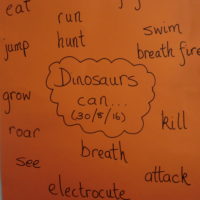 eat
run
swim
jump
hunt
breath fire
Dinosaurs
can...
(30/8/16)
grow
kill
roar
breath
see
attack
electrocute